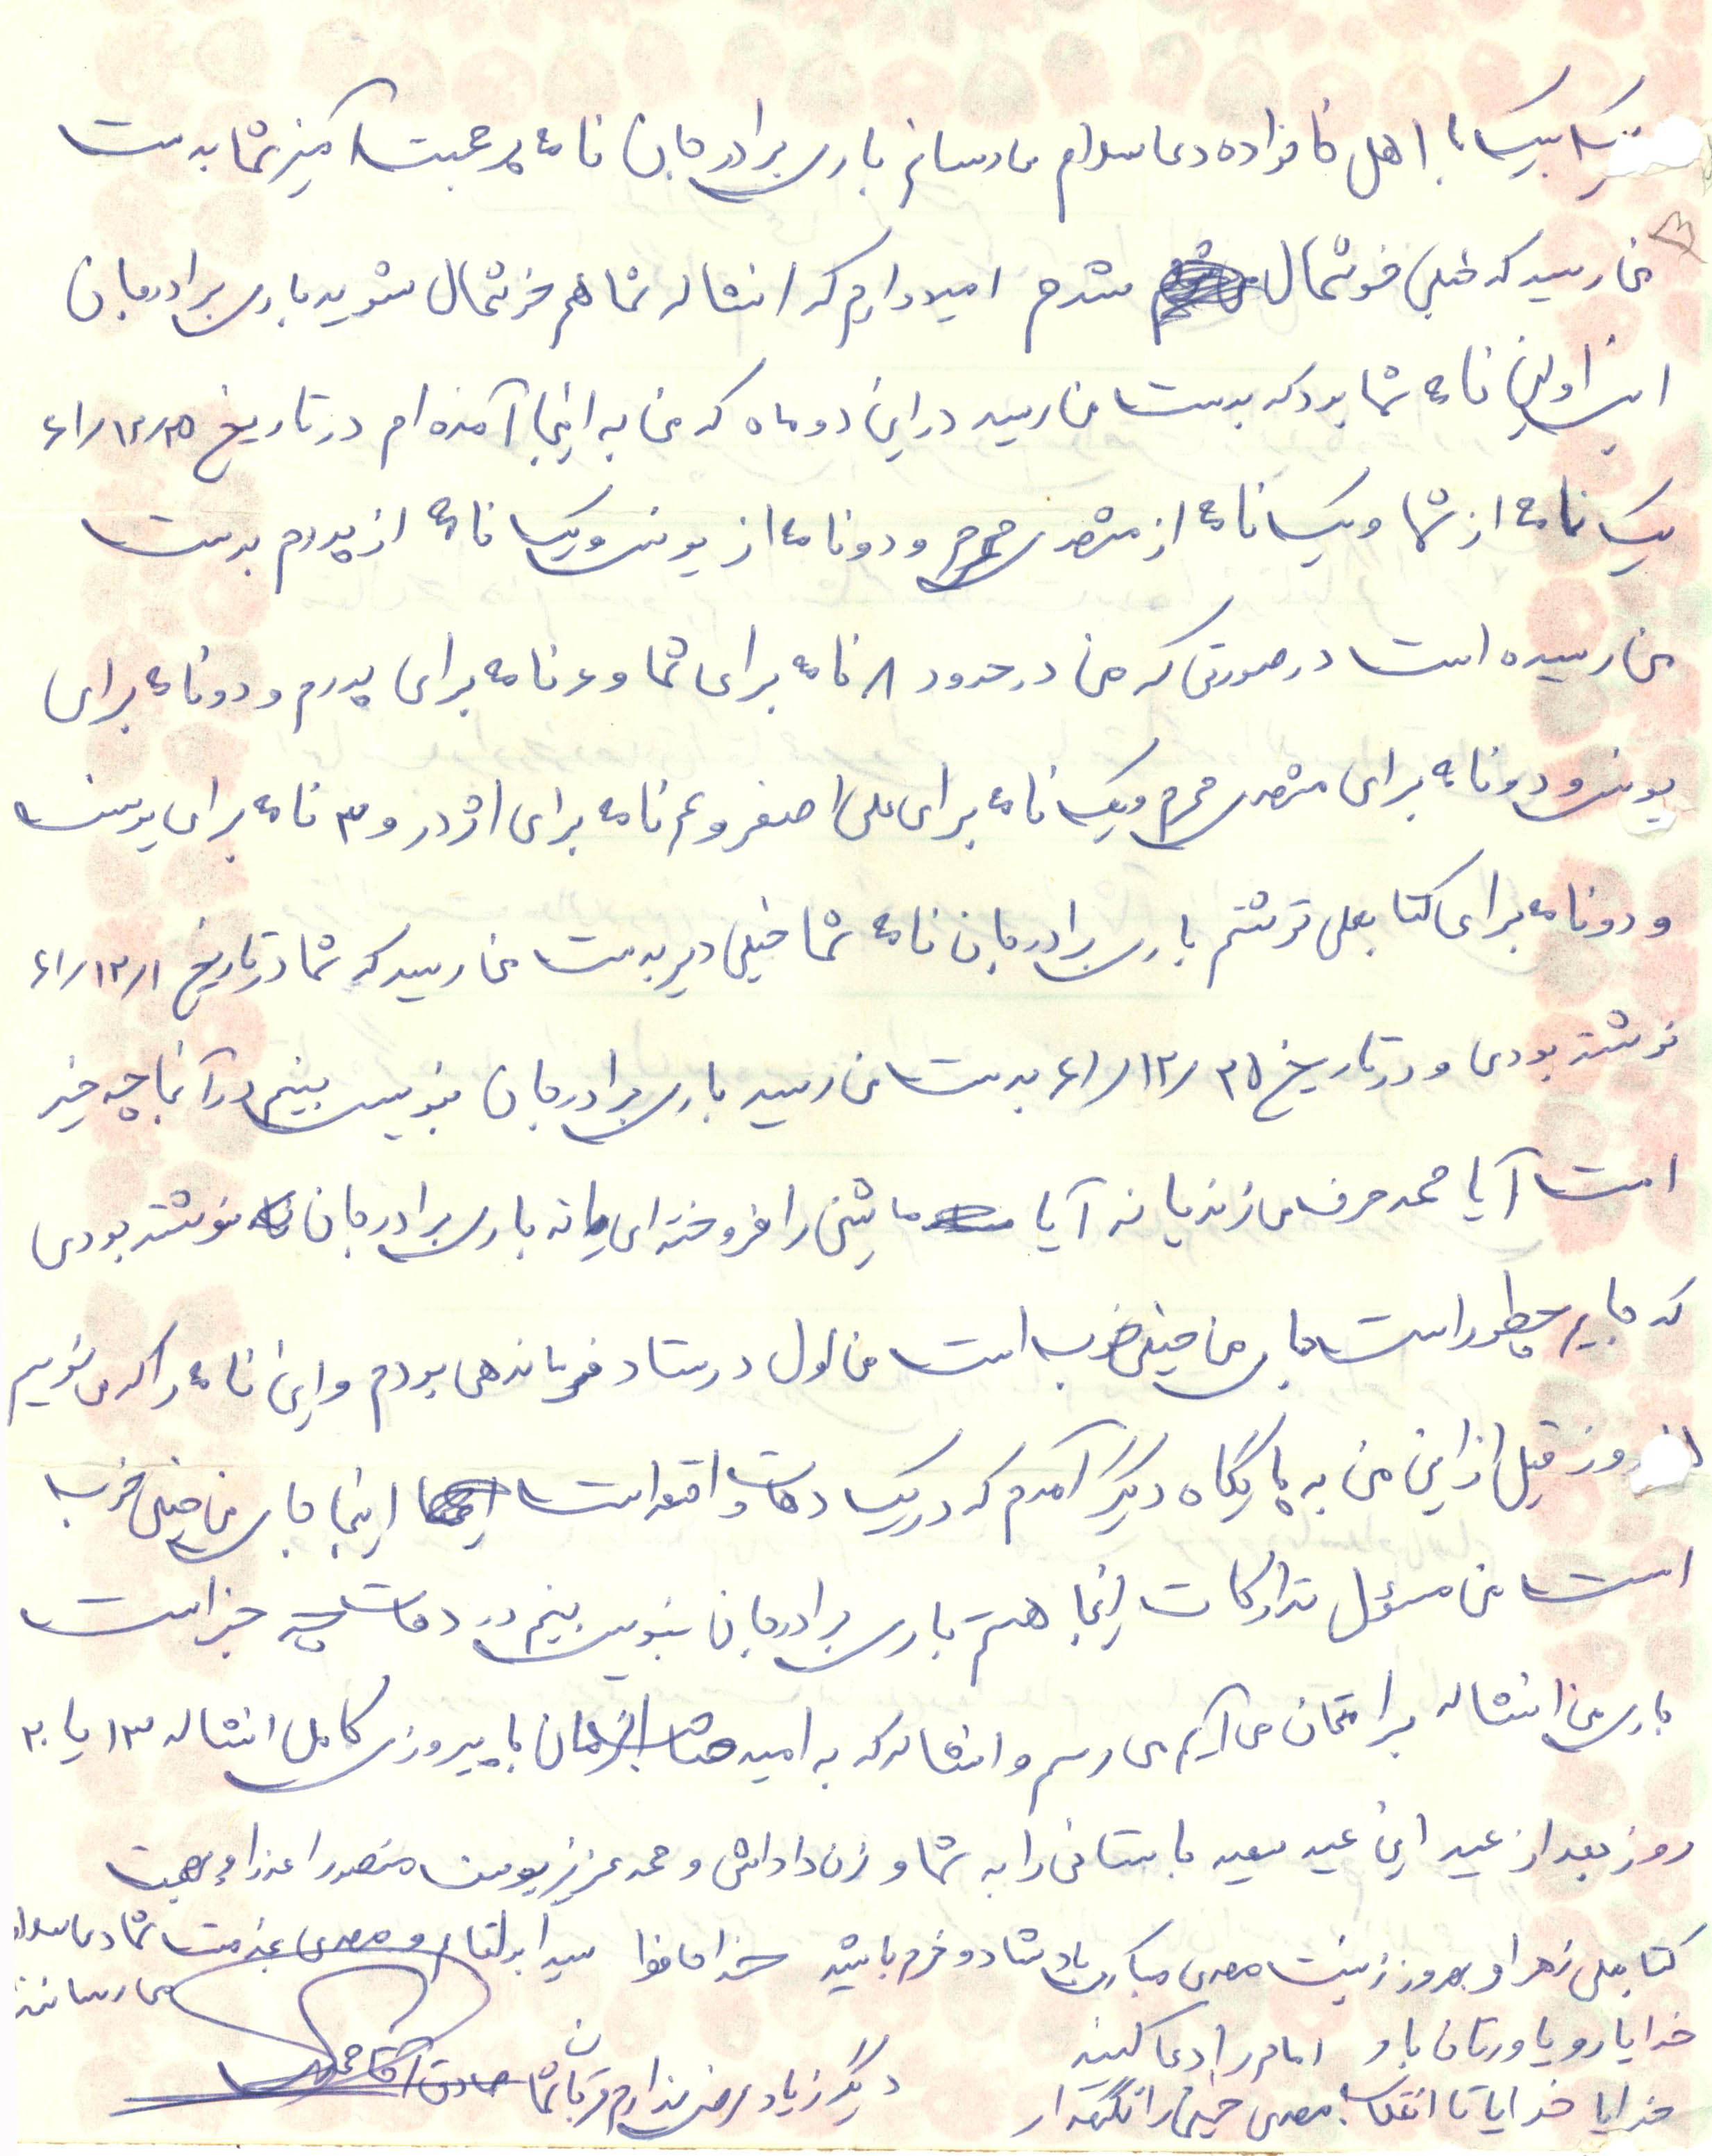 یک بیک با اهل خانواده دعا سلام می رسانم باری برادر جان نامه پر محبت آمیز شما بدست
من رسید که خیلی خوشحال شدم امیدوارم که انشاله شما هم خوشحال شوید باری برادر جان
این اولین نامه شما بود که بدست من رسید در این دو ماه که من به اینجا آمده ام در تاریخ ۶۱/۱۲/۲۵
یک نامه از شما و یک نامه از مشهدی محرم و دو نامه از یونس و یک نامه از پدرم بدست
من رسیده است در صورتی که من در حدود ۸ نامه برای شما و ۶ نامه برای پدرم و دو نامه برای
یونس و دو نامه برای مشهدی محرم و یک نامه برای علی اصغر و ۴ نامه برای اژدر و ۳ نامه برای یوسف
و دو نامه برای کتابعلی نوشتم باری برادر جان نامه شما خیلی دیر بدست من رسید که شما در تاریخ ۶۱/۱۲/۱
نوشته بودی و در تاریخ ۶۱/۱۲/۲۵ بدست من رسید باری برادر جان بنویس ببینم در آنجا چه خبر
است آیا محمد حرف می زند یا نه آیا ماشین را فروخته ای یا نه باری برادر جان نوشته بودی
که جایم چطور است جای من خیلی خوب است من اول در ستاد فرماندهی بودم و این نامه را که می نویسم
روز قبل از این من به پایگاه دیگر آمدم که در یک دهات واقع است اینجا جای من خیلی خوب
است من مسؤل تدارکات اینجا هستم باری برادر جان بنویس ببینم در دهات چه خبر است
باری من انشاله برا امتحان می آیم می رسم و انشاله که به امید پیروزی کامل انشاله ۱۳ یا ۲۰
روز بعد از عید این عید سعید باستانی را به شما و زن داداش و محمد عزیز یوسف منصور اعذرا و بهجت
کتابعلی زهرا و بهروز زینت مهدی مبارک باد شاد و خرم باشید خداحافظ سید ابوالقاسم و مهدی بخدمت شما دعا سلام
می رسانند
خدا یار و یاورتان باد امام را دعا کنید
دیگر زیاد عرض ندارم قربان شما صادق آقامحمدی
خدایا خدایا تا انقلاب مهدی خمینی را نگهدار